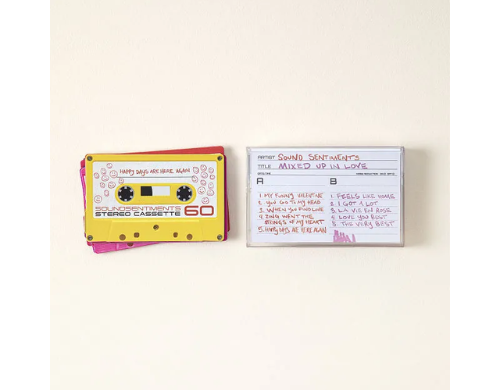 HAPPY DAYS ARE HERE AGAIN
SOUNDSENTIMENTS
STEREO CASSETTE 60
ARTIST SOUND SENTIMENTS
TITLE MIXED UP IN LOVE
A
B
1. MY FUNNY VALENTINE
2. YOU GO TO MY HEAD
3. WHEN YOU FIND LOVE
4. ZING WENT THE
STRINGS OF MY HEART
5. HAPPY DAYS ARE HERE AGAIN
1. FEELS LIKE HOME
2. I GOT A LOT
3. LA VIE EN ROSE
4. LOVE YOU BEST
5. THE VERY BEST